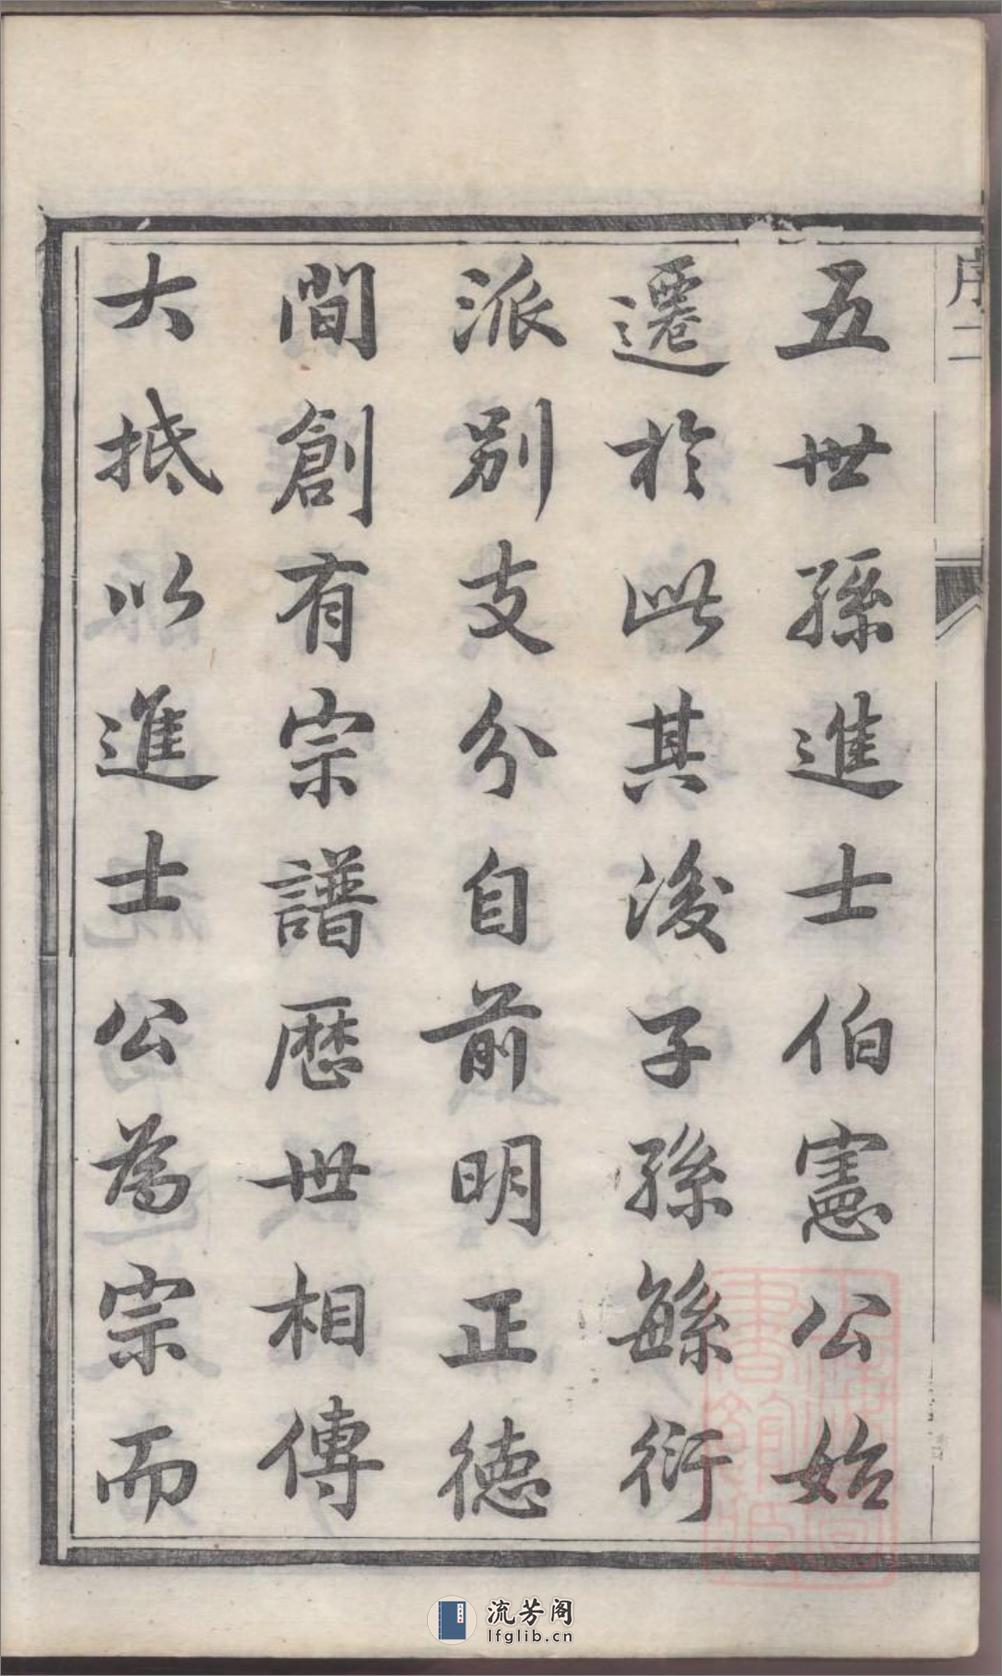 序二
五世孫進士伯憲公始
遷於此其後子孫繁衍
派別支分自前明正德
間創有宗譜歷世相傳
大抵以進士公為宗而
流芳阁
lfglib.cn